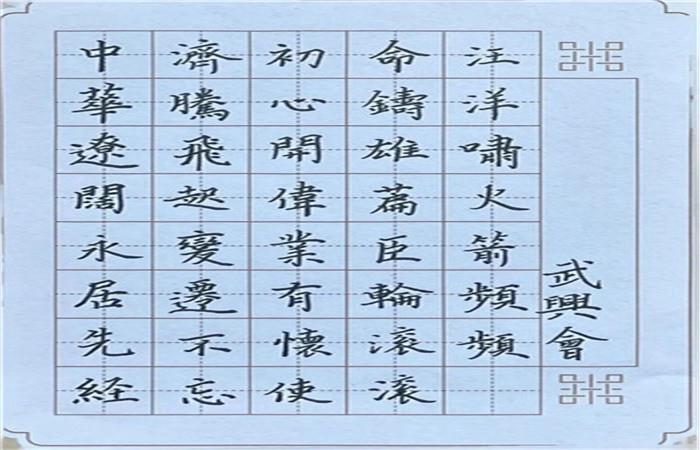 中華遼闊永居先経
濟騰飛起變遷不忘
初心開偉業有懷使
命鑄雄篇臣輪滾滾
汪洋嘯火箭頻頻
武興會